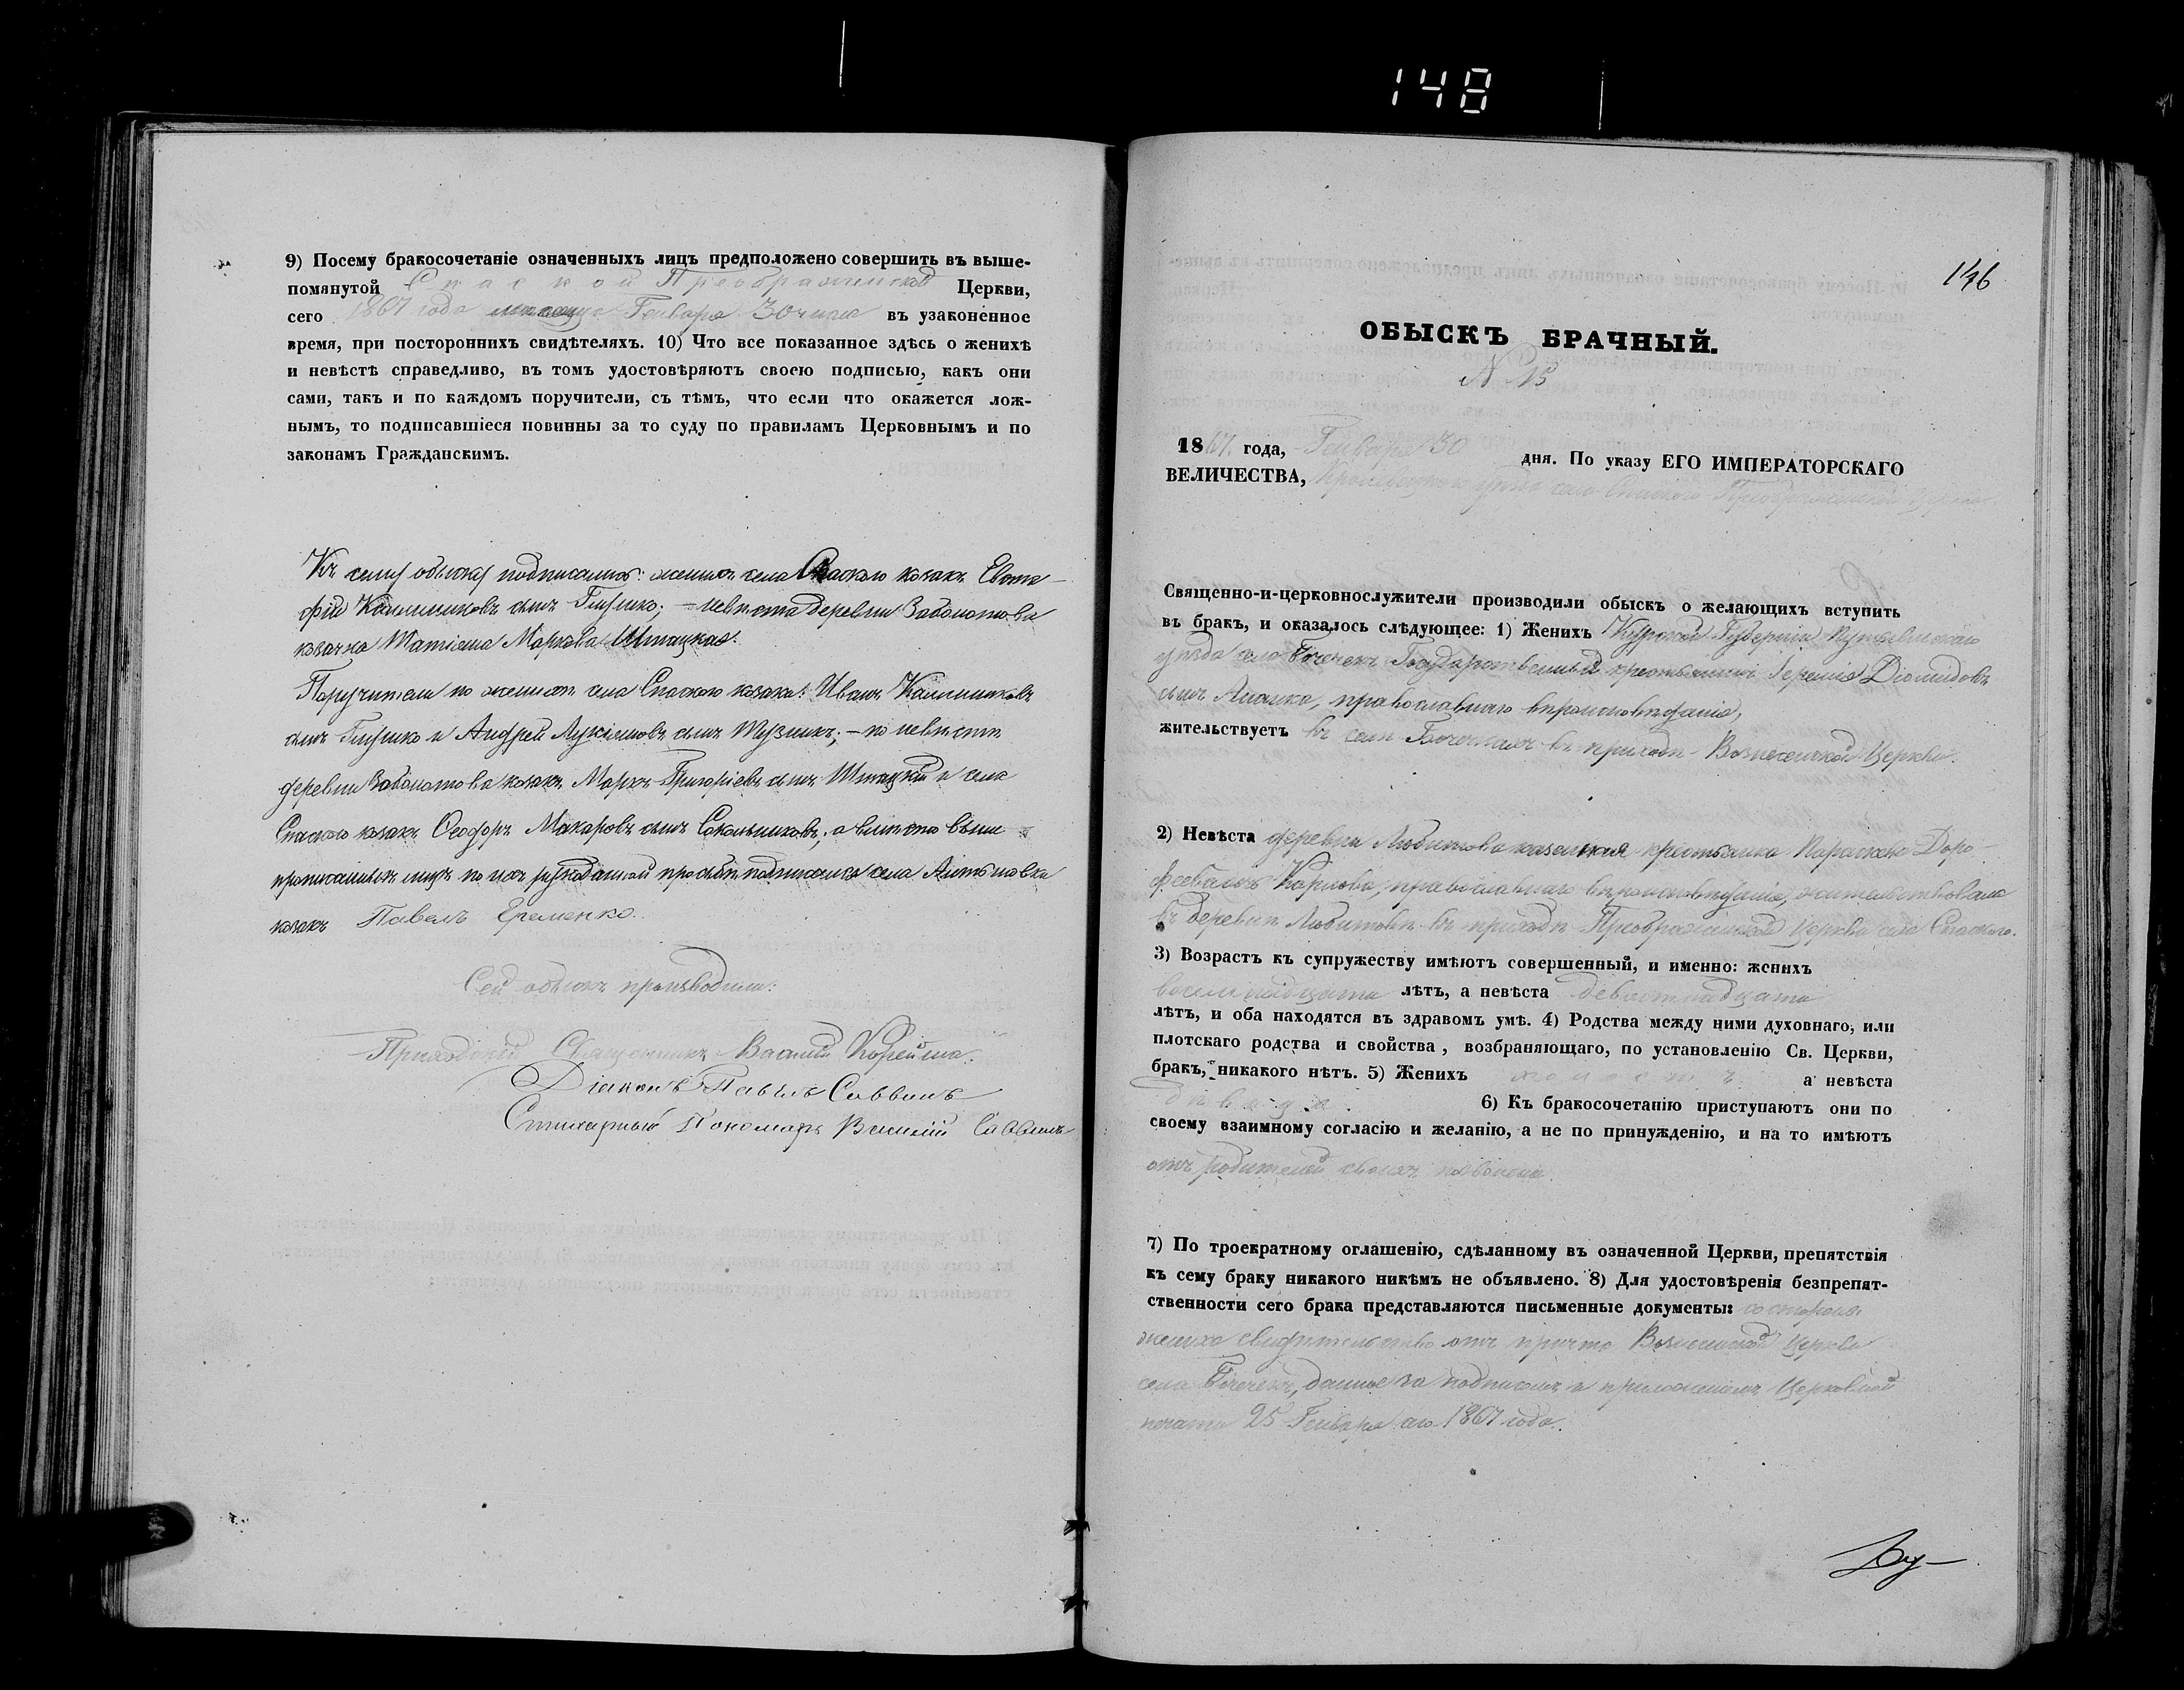 148
9) Посему бракосочетаніе означенныхъ лицъ предположено совершить въ выше-
помянутой Спаской Преображенской Церкви,
сего 1867 года месяца Генваря 30 числа въ узаконенное
время, при постороннихъ свидѣтеляхъ. 10) Что все показанное здѣсь о женихѣ
и невѣстѣ справедливо, въ томъ удостовѣряютъ своею подписью, какъ они
сами, такъ и по каждомъ поручители, съ тѣмъ, что если что окажется лож-
нымъ, то подписавшіеся повинны за то суду по правиламъ Церковнымъ и по
законамъ Гражданскимъ.
Къ сему обыску подписались: женихъ села Спаского козакъ Евста-
фій Калинниковъ сынъ Глушко; — невѣста деревни Заболотова
козачка Татіана Маркова Штацкая.
Поручители по женихѣ села Спаского козаки: Иванъ Калинниковъ
сынъ Глушко и Андрей сынъ; — по невѣстѣ
деревни Заболотова козакъ Марко Григоріевъ сынъ Штацкій и села
Спаского козакъ Ѳеодоръ Макаровъ сынъ Сокольниковъ; а вмѣсто выше
прописанныхъ лицъ по ихъ рукоданной просьбѣ подписался села
козакъ Павелъ Еременко.
Сей обыскъ производили:
Приходскій Священникъ Василій Корейша.
Діаконъ Павелъ Саввинъ
Стихарный Пономарь Василій Саввинъ
146
ОБЫСКЪ БРАЧНЫЙ.
N 15
1867 года, Генваря 30 дня. По указу ЕГО ИМПЕРАТОРСКАГО
ВЕЛИЧЕСТВА, Кролевецкого уѣзда села Спаского Преображенской Церкви
Священно-и-церковнослужители производили обыскъ о желающихъ вступить
въ бракъ, и оказалось слѣдующее: 1) Женихъ Курской Губерніи Путивльскаго
уѣзда села Бочечекъ Государственный крестьянинъ Іеремія Діомидовъ
сынъ православнаго вѣроисповѣданія,
жительствуетъ въ селѣ Бочечкахъ въ приходѣ Вознесенской Церкви.
2) Невѣста деревни Любитова казенная крестьянка Параскева Доро-
феевна Карпова, православнаго вѣроисповѣданія, жительствовала
въ деревнѣ Любитовѣ въ приходѣ Преображенской Церкви села Спаского.
3) Возрастъ къ супружеству имѣютъ совершенный, и именно: женихъ
восемнадцати лѣтъ, а невѣста девятнадцати
лѣтъ, и оба находятся въ здравомъ умѣ. 4) Родства между ними духовнаго, или
плотскаго родства и свойства, возбраняющаго, по установленію Св. Церкви,
бракъ, никакого нѣтъ. 5) Женихъ холостъ а невѣста
дѣвица 6) Къ бракосочетанію приступаютъ они по
своему взаимному согласію и желанію, а не по принужденію, и на то имѣютъ
отъ родителей своихъ позволеніе.
7) По троекратному оглашенію, сдѣланному въ означенной Церкви, препятствія
къ сему браку никакого никѣмъ не объявлено. 8) Для удостовѣренія безпрепят-
ственности сего брака представляются письменные документы: со стороны
жениха свидѣтельство отъ причта Вознесенской Церкви
села Бочечекъ, данное за подписомъ и приложеніемъ Церковной
печати 25 Генваря сего 1867 года.